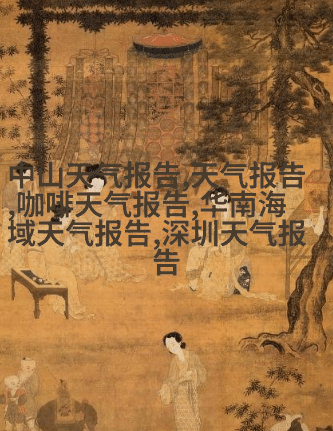 中山天气报告,天气报告
,咖啡天气报告,华南海
域天气报告,深圳天气报
告